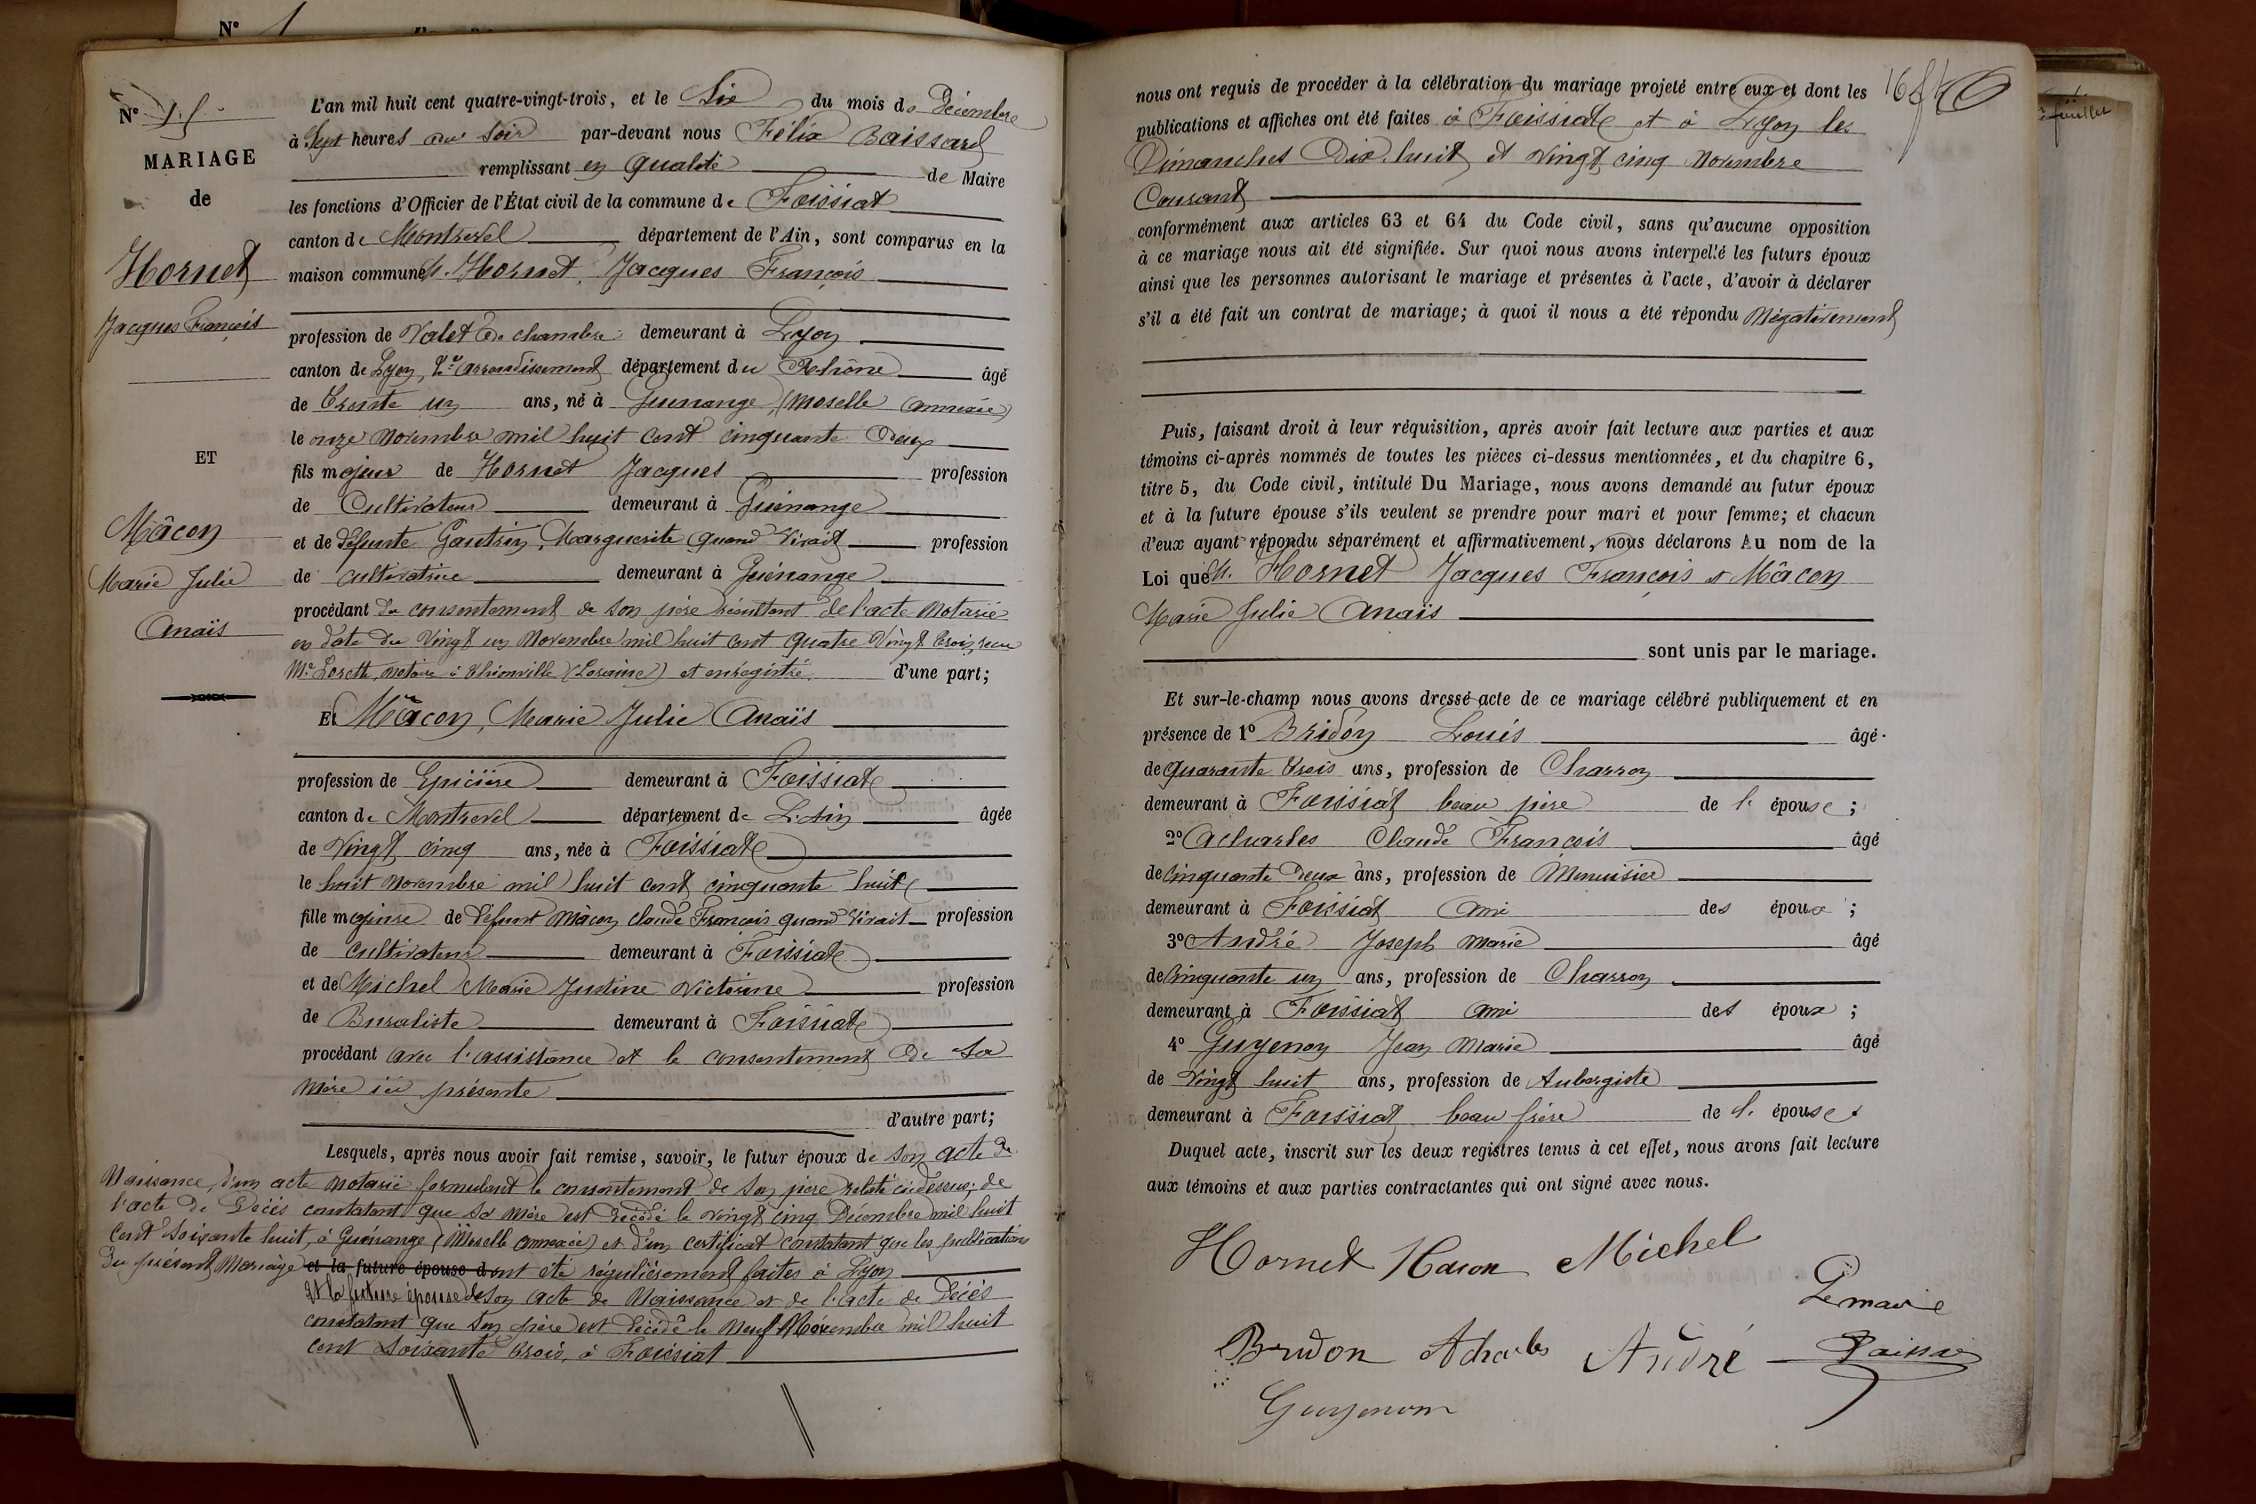 N° 1
N° 15
MARIAGE
de
Hornet
Jacques François
ET
Mâcon
Marie Julie
Anaïs
L'an mil huit cent quatre-vingt-trois, et le Six du mois de Décembre
à Sept heures du soir par-devant nous Félix Baissard
remplissant en qualité de Maire
les fonctions d'Officier de l'État civil de la commune de Foissiat
canton de Montrevel département de l'Ain, sont comparus en la
maison commune M. Hornet, Jacques François
profession de Valet de chambre demeurant à Lyon
canton de Lyon, 2e arrondissement département du Rhône âgé
de Trente un ans, né à Guénange, (Moselle annexée)
le onze Novembre mil huit cent cinquante Deux
fils majeur de Hornet Jacques profession
de Cultivateur demeurant à Guénange
et de défunte Gautrin, Marguerite quand vivait profession
de cultivatrice demeurant à Guénange
procédant du consentement de son père résultant de l'acte Notarié
en date du Vingt un Novembre mil huit cent quatre Vingt trois, reçu
Me Lorette, notaire à Thionville (Lorraine) et enregistré. d'une part;
Et Mâcon, Marie Julie Anaïs
profession de Epicière demeurant à Foissiat
canton de Montrevel département de L'Ain âgée
de Vingt cinq ans, née à Foissiat
le huit Novembre mil huit cent cinquante huit
fille majeure de défunt Mâcon Claude François quand vivait profession
de cultivateur demeurant à Foissiat
et de Michel Marie Justine Victorine profession
de Buraliste demeurant à Foissiat
procédant avec l'assistance et le consentement de sa
mère ici présente
d'autre part;
Lesquels, après nous avoir fait remise, savoir, le futur époux de son acte de
Naissance, d'un acte notarié formulant le consentement de son père relaté ci-dessus; de
l'acte de Décès constatant que sa mère est décédée le vingt cinq Décembre mil huit
cent soixante huit, à Guénange (Moselle annexée) et d'un certificat constatant que les publications
du présent Mariage et la future épouse dont été régulièrement faites à Lyon
et la future épouse de son acte de Naissance et de l'acte de Décès
constatant que son père est décédé le Neuf Novembre mil huit
cent soixante trois, à Foissiat
nous ont requis de procéder à la célébration du mariage projeté entre eux et dont les
publications et affiches ont été faites à Foissiat et à Lyon les
Dimanches Dix huit et Vingt cinq Novembre
Courant
conformément aux articles 63 et 64 du Code civil, sans qu'aucune opposition
à ce mariage nous ait été signifiée. Sur quoi nous avons interpellé les futurs époux
ainsi que les personnes autorisant le mariage et présentes à l'acte, d'avoir à déclarer
s'il a été fait un contrat de mariage; à quoi il nous a été répondu Négativement
Puis, faisant droit à leur réquisition, après avoir fait lecture aux parties et aux
témoins ci-après nommés de toutes les pièces ci-dessus mentionnées, et du chapitre 6,
titre 5, du Code civil, intitulé Du Mariage, nous avons demandé au futur époux
et à la future épouse s'ils veulent se prendre pour mari et pour femme; et chacun
d'eux ayant répondu séparément et affirmativement, nous déclarons Au nom de la
Loi que M. Hornet Jacques François et Mâcon
Marie Julie Anaïs
sont unis par le mariage.
Et sur-le-champ nous avons dressé acte de ce mariage célébré publiquement et en
présence de 1° Bridon Louis âgé
de quarante trois ans, profession de Charron
demeurant à Foissiat beau père de l' épouse;
2° Acharles Claude François âgé
de Cinquante Deux ans, profession de Menuisier
demeurant à Foissiat ami des époux;
3° André Joseph Marie âgé
de Cinquante un ans, profession de Charron
demeurant à Foissiat ami des époux;
4° Guyenon Jean Marie âgé
de Vingt huit ans, profession de Aubergiste
demeurant à Foissiat beau frère de l' épouse
Duquel acte, inscrit sur les deux registres tenus à cet effet, nous avons fait lecture
aux témoins et aux parties contractantes qui ont signé avec nous.
Hornet Macon Michel
Le maire
Bridon Acharles André
Guyenon